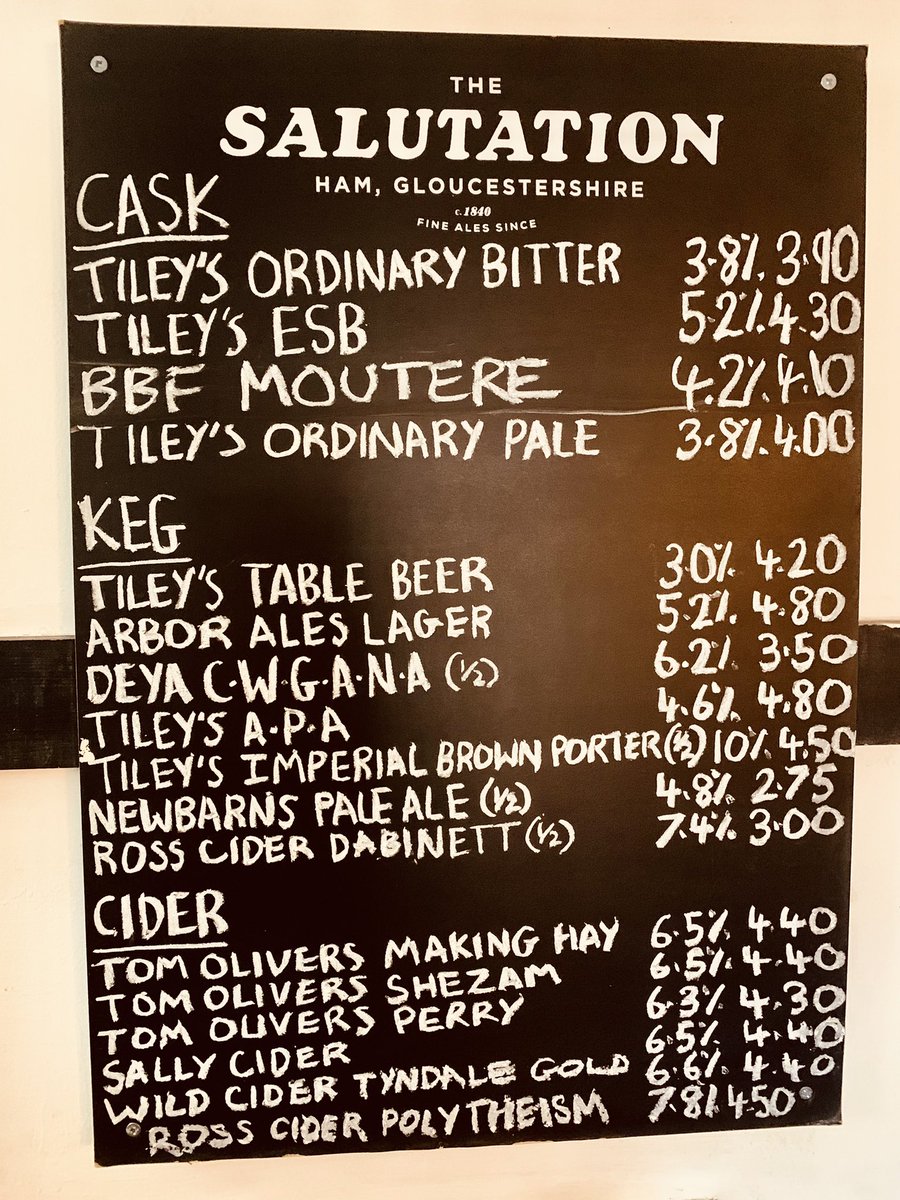 THE
SALUTATION
HAM, GLOUCESTERSHIRE
c.1840
FINE ALES SINCE
CASK
TILEY'S ORDINARY BITTER 3.8% 3.90
TILEY'S ESB 5.2% 4.30
BBF MOUTERE 4.2% 4.10
TILEY'S ORDINARY PALE 3.8% 4.00
KEG
TILEY'S TABLE BEER 3.0% 4.20
ARBOR ALES LAGER 5.2% 4.80
DEYA C.W.G.A.N.A (1/2) 6.2% 3.50
TILEY'S A.P.A 4.6% 4.80
TILEY'S IMPERIAL BROWN PORTER (1/2) 10% 4.50
NEWBARNS PALE ALE (1/2) 4.8% 2.75
ROSS CIDER DABINETT (1/2) 7.4% 3.00
CIDER
TOM OLIVERS MAKING HAY 6.5% 4.40
TOM OLIVERS SHEZAM 6.5% 4.40
TOM OLIVERS PERRY 6.3% 4.30
SALLY CIDER 6.5% 4.40
WILD CIDER TYNDALE GOLD 6.6% 4.40
ROSS CIDER POLYTHEISM 7.8% 4.50